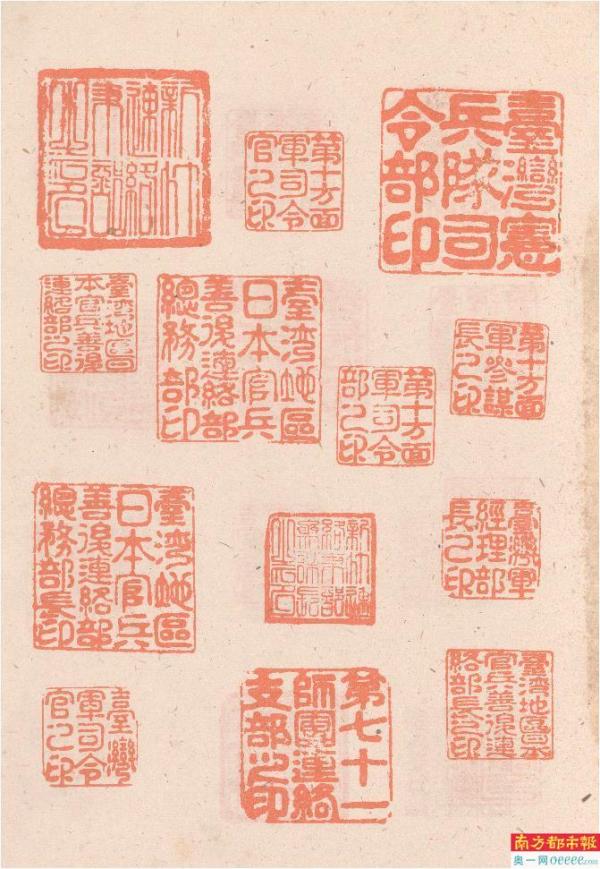 新竹
連絡
第十方面
軍司令
官之印
臺灣憲
兵隊司
令部印
臺湾地區日
本官兵善後
連絡部之印
臺湾地區
日本官兵
善後連絡部
總務部印
第十方面
軍參謀
長之印
第十方面
軍司令
部之印
臺湾地區
日本官兵
善後連絡部
總務部長印
新竹連
臺灣軍
經理部
長之印
臺灣
軍司令
官之印
第七十一
師團連絡
支部之印
臺湾地區日本
官兵善後連
絡部長之印
南方都市報
奥一网oeeee.com